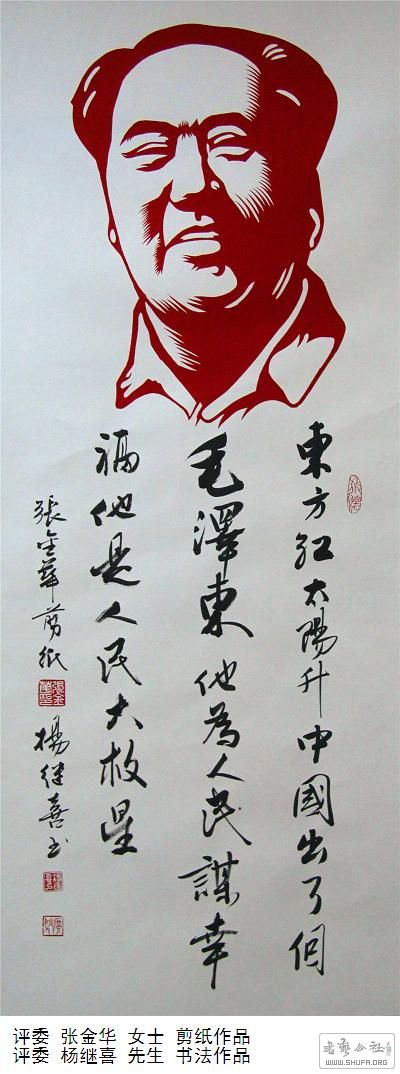 東方红太陽升中國出了個
毛澤東他為人民謀幸
福他是人民大救星
張金華剪紙
楊继喜书
评委 张金华 女士 剪纸作品
评委 杨继喜 先生 书法作品
书艺公社
WWW.SHUFA.ORG